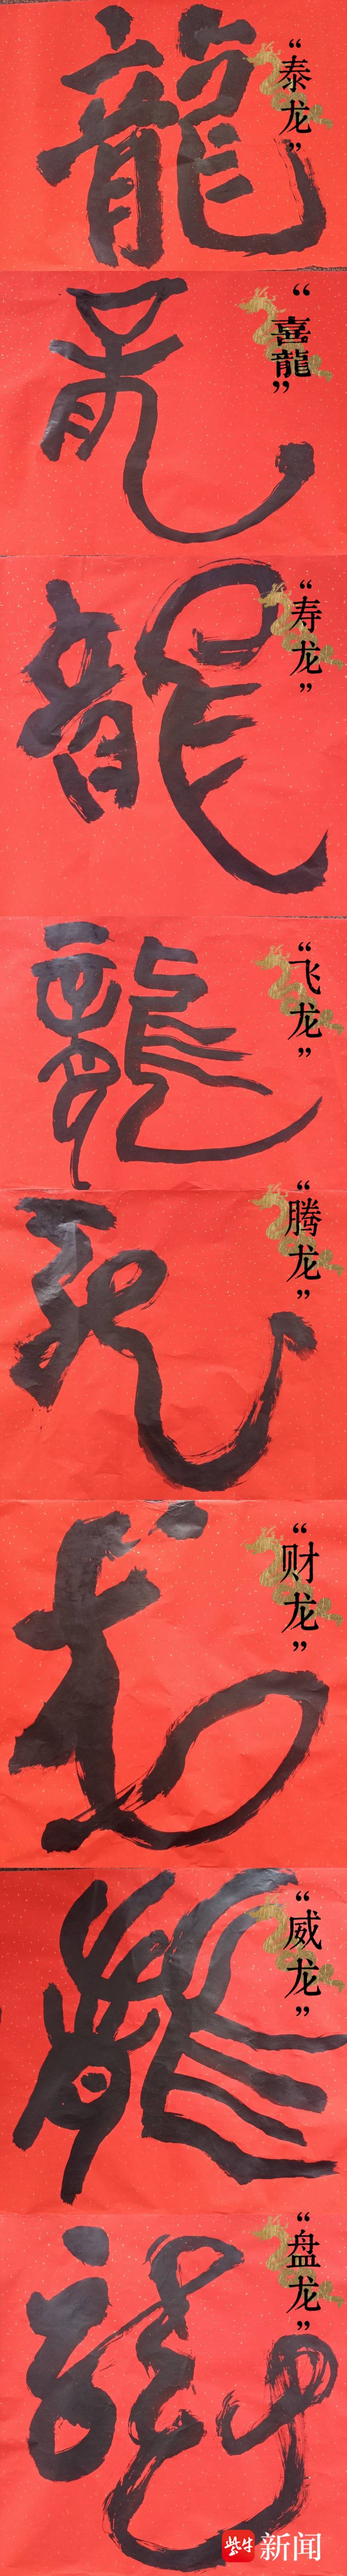 龍
“泰龙”
龍
“喜龍”
龍
“寿龙”
龍
“飞龙”
龍
“腾龙”
龙
“财龙”
龍
“威龙”
龍
“盘龙”
紫牛新闻